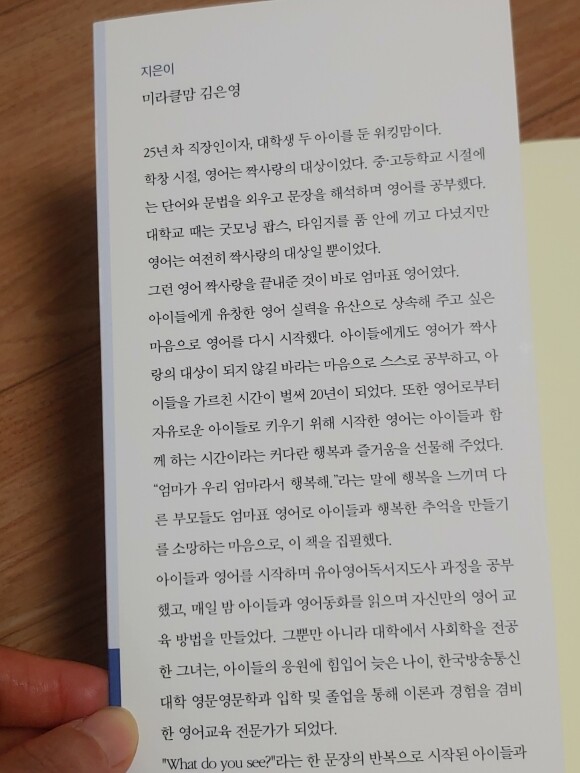 지은이
미라클맘 김은영
25년 차 직장인이자, 대학생 두 아이를 둔 워킹맘이다.
학창 시절, 영어는 짝사랑의 대상이었다. 중·고등학교 시절에
는 단어와 문법을 외우고 문장을 해석하며 영어를 공부했다.
대학교 때는 굿모닝 팝스, 타임지를 품 안에 끼고 다녔지만
영어는 여전히 짝사랑의 대상일 뿐이었다.
그런 영어 짝사랑을 끝내준 것이 바로 엄마표 영어였다.
아이들에게 유창한 영어 실력을 유산으로 상속해 주고 싶은
마음으로 영어를 다시 시작했다. 아이들에게도 영어가 짝사
랑의 대상이 되지 않길 바라는 마음으로 스스로 공부하고, 아
이들을 가르친 시간이 벌써 20년이 되었다. 또한 영어로부터
자유로운 아이들로 키우기 위해 시작한 영어는 아이들과 함
께 하는 시간이라는 커다란 행복과 즐거움을 선물해 주었다.
“엄마가 우리 엄마라서 행복해.”라는 말에 행복을 느끼며 다
른 부모들도 엄마표 영어로 아이들과 행복한 추억을 만들기
를 소망하는 마음으로, 이 책을 집필했다.
아이들과 영어를 시작하며 유아영어독서지도사 과정을 공부
했고, 매일 밤 아이들과 영어동화를 읽으며 자신만의 영어 교
육 방법을 만들었다. 그뿐만 아니라 대학에서 사회학을 전공
한 그녀는, 아이들의 응원에 힘입어 늦은 나이, 한국방송통신
대학 영문영문학과 입학 및 졸업을 통해 이론과 경험을 겸비
한 영어교육 전문가가 되었다.
"What do you see?"라는 한 문장의 반복으로 시작된 아이들과